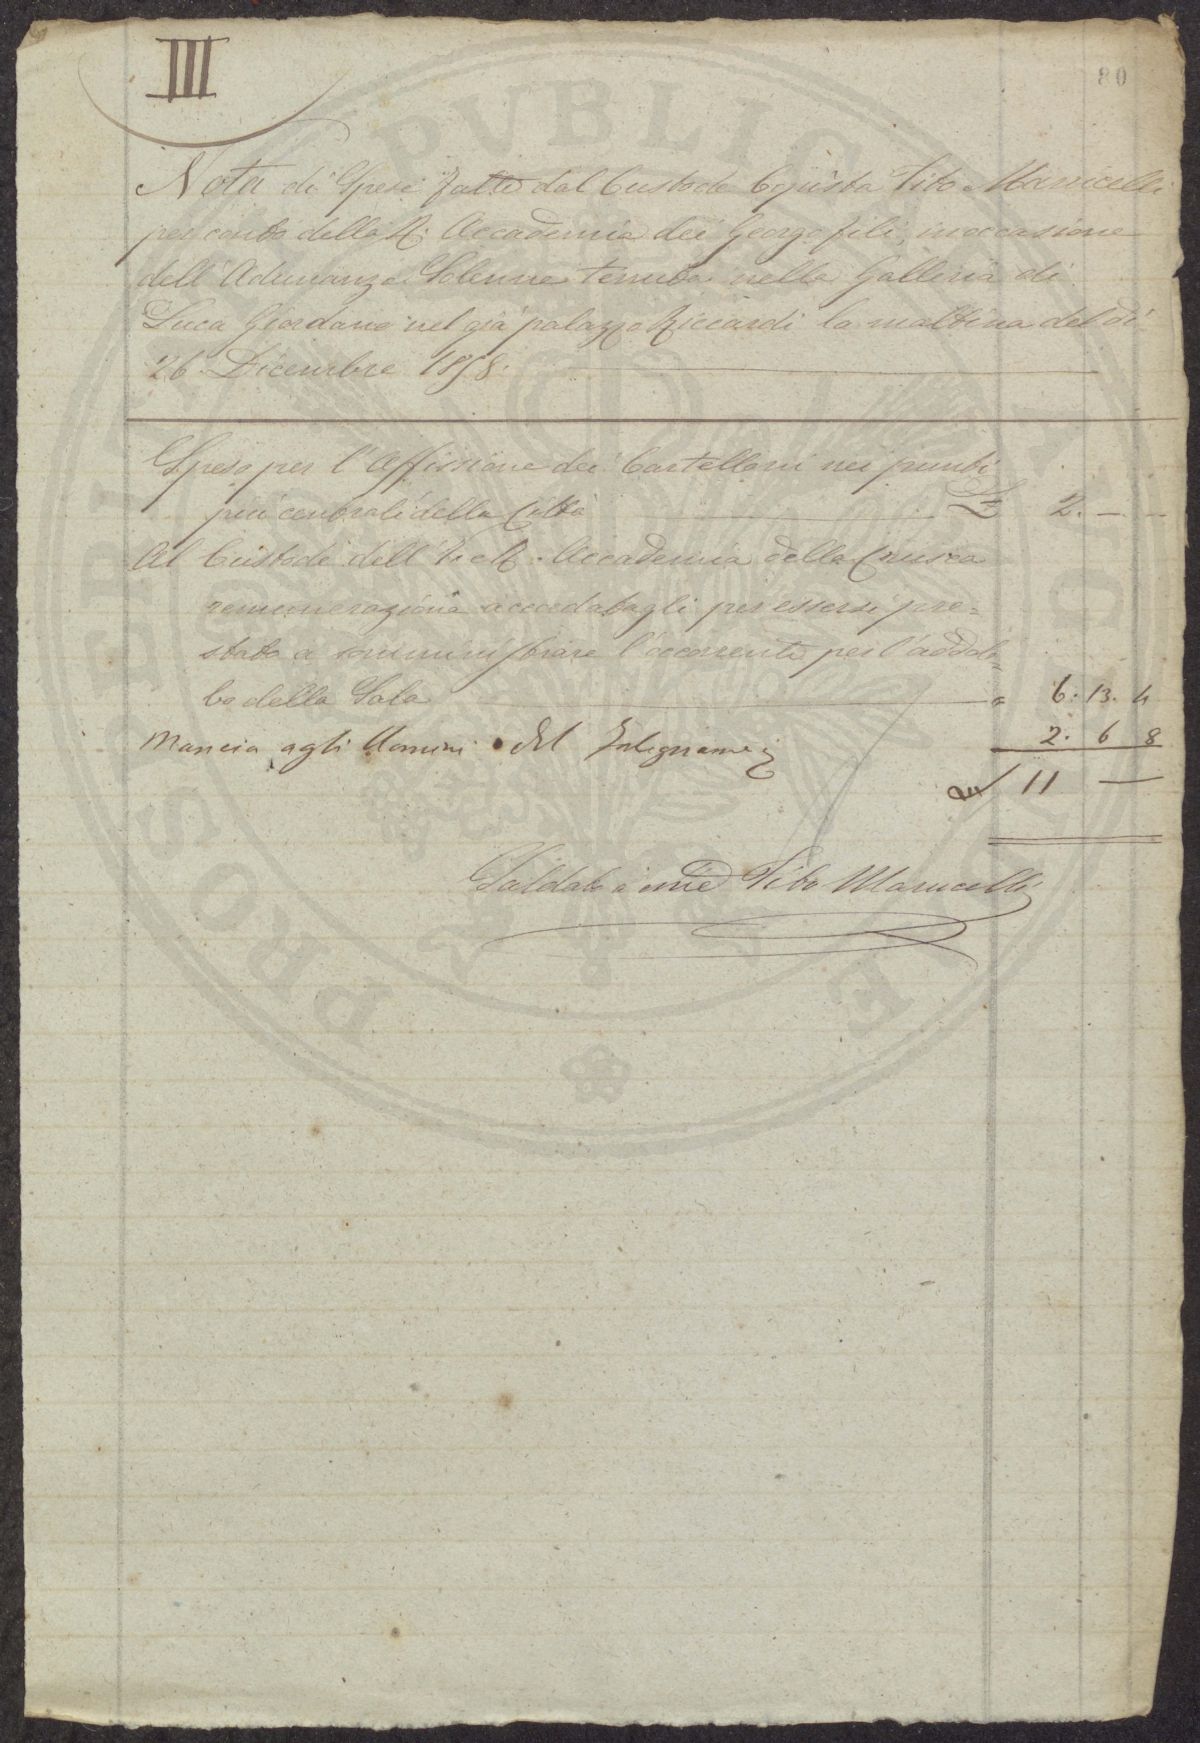 III
80
Nota di Spese fatte dal Custode Copista Tito Marucelli
per conto della R. Accademia dei Georgofili, in occasione
dell'Adunanza Solenne tenuta nella Galleria di
Luca Giordano nel già palazzo Riccardi la mattina del dì
26. Dicembre 1858.
Spesa per l'Affissione dei Cartelloni nei punti
più centrali della Città £ 2. — —
Al Custode dell'I. e R. Accademia della Crusca
remunerazione accordatagli per essersi pre=
stato a somministrare l'occorrente per l'addob=
bo della Sala " 6. 13. 4
Mancia agli Uomini del Falegname 2. 6 8
£ 11 —
Saldato a me Tito Marucelli
PROSPERITATI PVBLICAE AVGENDAE